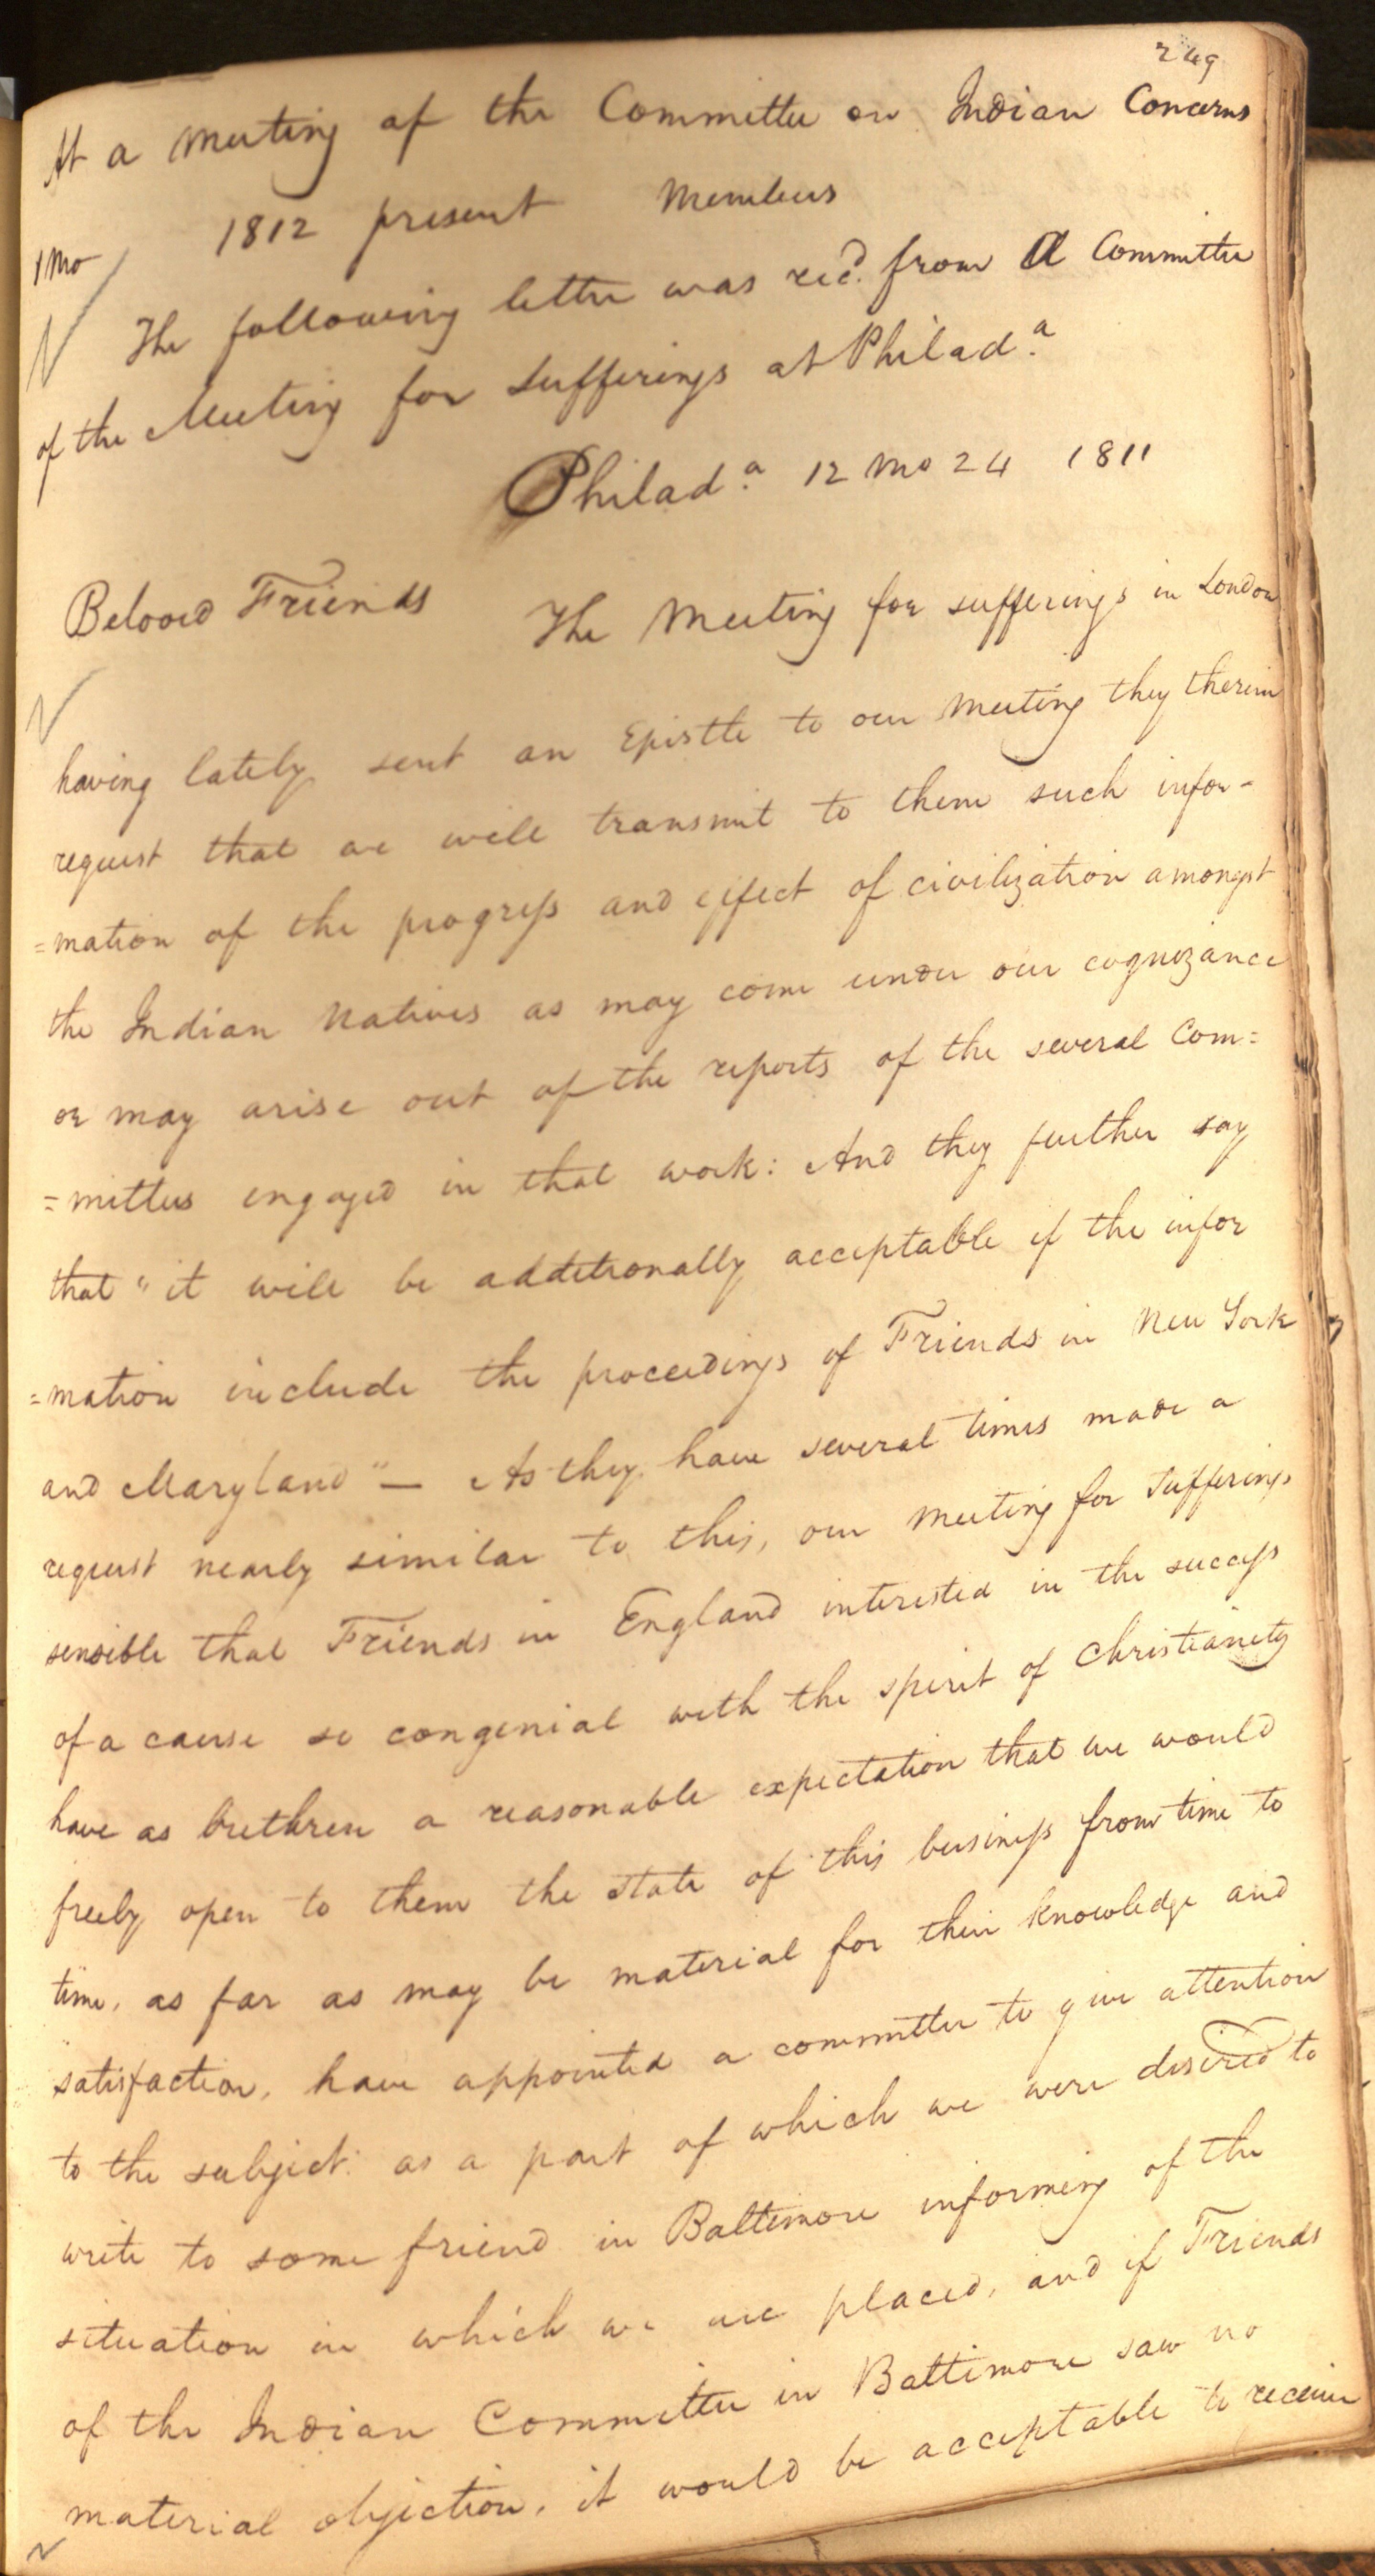 249
At a meeting of the Committee on Indian Concerns
1 mo 1812 present Members
The following letter was recd. from A Committee
of the Meeting for Sufferings at Philada.
Philada. 12 mo 24 1811
Beloved Friends The Meeting for sufferings in London
having lately sent an Epistle to our meeting they therein
request that we will transmit to them such infor-
=mation of the progress and effect of civilization amongst
the Indian Natives as may come under our cognizance
or may arise out of the reports of the several Com=
=mittees engaged in that work: And they further say
that "it will be additionally acceptable if the infor
=mation include the proceedings of Friends in New York
and Maryland" — As they have several times made a
request nearly similar to this, our meeting for Sufferings
sensible that Friends in England interested in the success
of a cause so congenial with the spirit of Christianity
have as brethren a reasonable expectation that we would
freely open to them the state of this business from time to
time, as far as may be material for their knowledge and
satisfaction, have appointed a committee to give attention
to the subject: as a part of which we were desired to
write to some friend in Baltimore informing of the
situation in which we are placed, and if Friends
of the Indian Committee in Baltimore saw no
material objection, it would be acceptable to receive